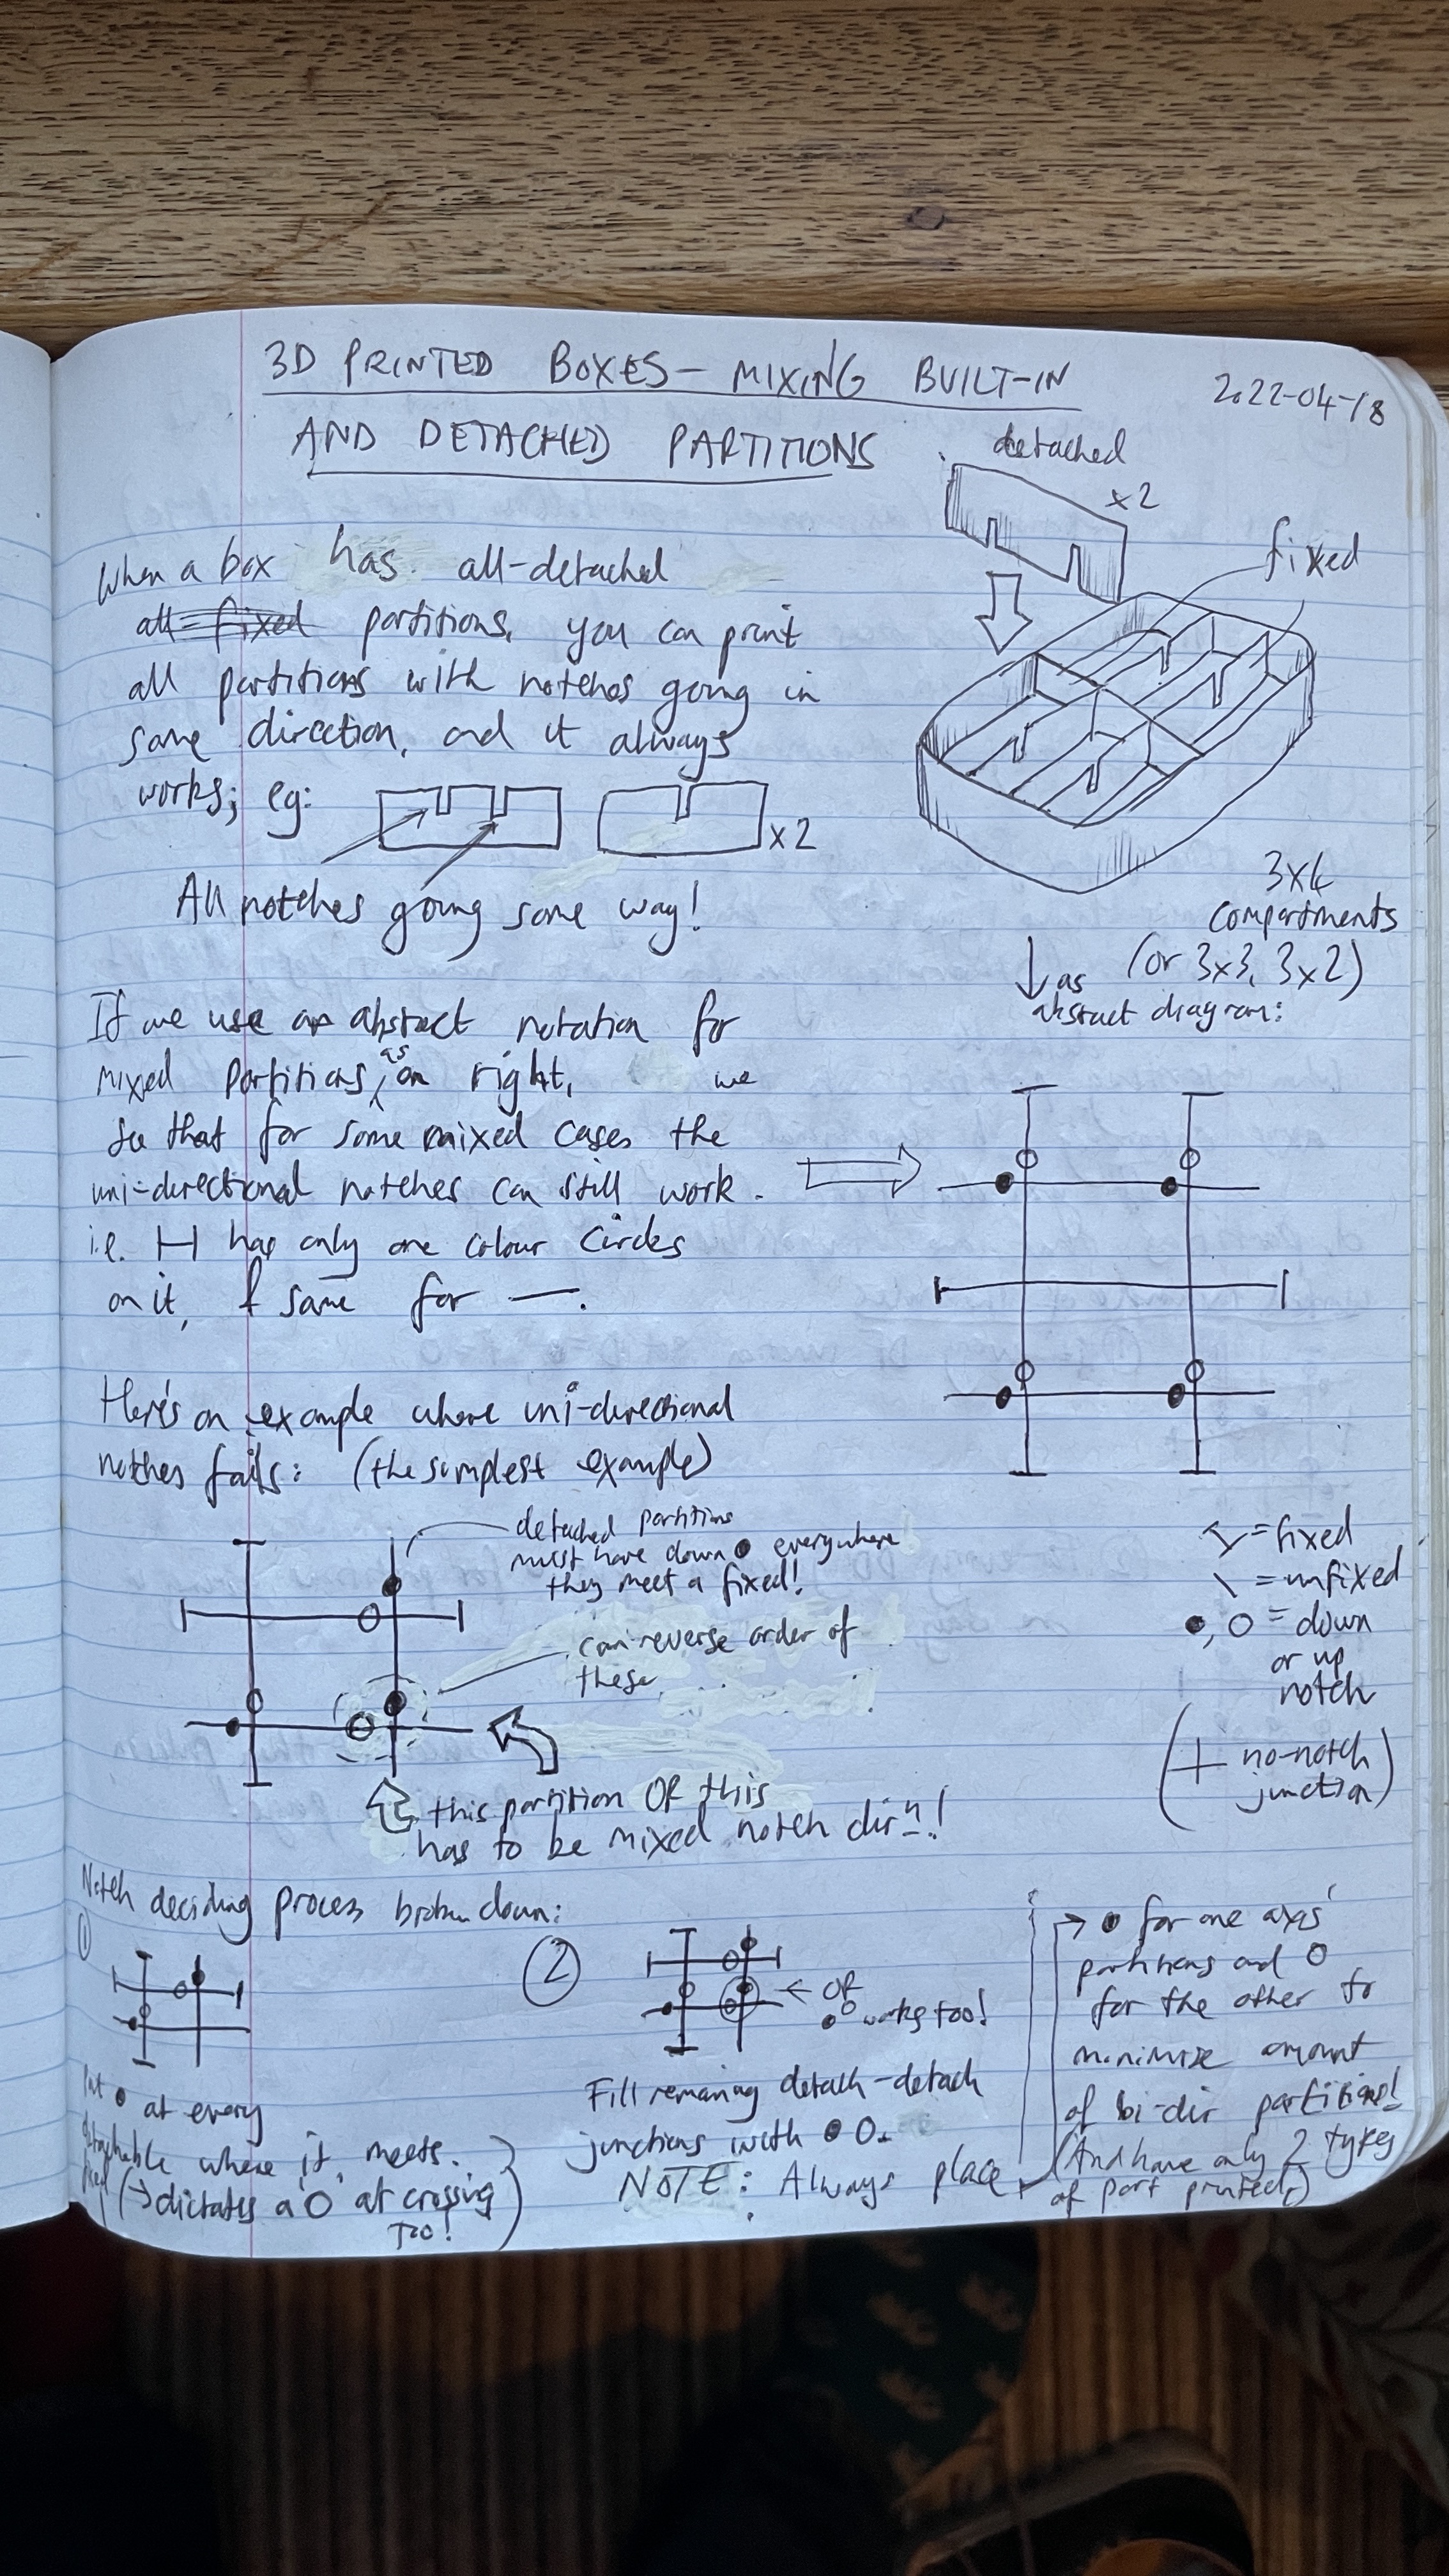 3D PRINTED BOXES - MIXING BUILT-IN
AND DETACHED PARTITIONS
2022-04-18
detached
x2
fixed
When a box has all-detached
all-fixed partitions, you can print
all partitions with notches going in
same direction, and it always
works; eg:
x2
All notches going same way!
3x4
compartments
(or 3x3, 3x2)
↓ as
abstract diagram:
If we use an abstract notation for
mixed partitions, as on right, we
see that for some mixed cases the
uni-directional notches can still work.
i.e. H has only one colour circles
on it, & same for —.
Here's an example where uni-directional
notches fails: (the simplest example)
detached partitions
must have down ● everywhere
they meet a fixed!
can reverse order of
these
this partition OR this
has to be mixed notch dirn!
I = fixed
\ = unfixed
●, O = down
or up
notch
(+ no-notch
junction)
Notch deciding process broken down:
①
Put ● at every
detachable where it meets
fixed (→ dictates a O at crossing
too!)
②
← OR
works too!
Fill remaining detach-detach
junctions with ● O.
NOTE: Always place
→ ● for one axis'
partitions and O
for the other to
minimize amount
of bi-dir partitions!
(And have only 2 types
of part printed)